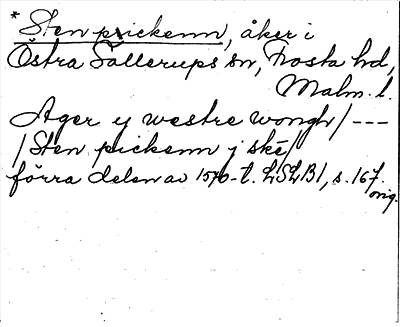 * Sten prickenn, åker i
Östra Sallerups sn, Frosta hd,
Malm. l.
Ager y westre wongh/ ---
/Sten pickenn j ske/
förra delen av 1570-t. LSLB1, s. 167.
orig.